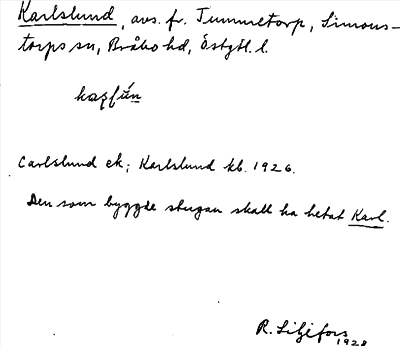 Karlslund, avs. fr. Tummetorp, Simons-
torps sn, Bråbo hd, Östgtl. l.
Carlslund ek; Karlslund kb. 1926.
Den som byggde stugan skall ha hetat Karl.
R. Liljefors
1928